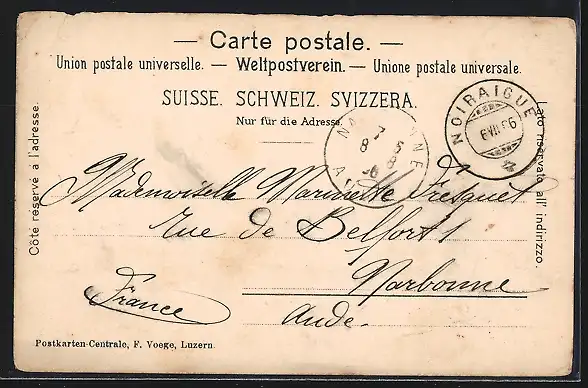 — Carte postale. —
Union postale universelle. — Weltpostverein. — Unione postale universale.
SUISSE. SCHWEIZ. SVIZZERA.
Nur für die Adresse.
NARBONNE
7 5
8 8
A
NOIRAIGUE
6 VII 06
Côté réservé à l'adresse.
Lato riservato all' indirizzo.
Mademoiselle Marinette Fresquet
Rue de Belfort 1
Narbonne
France
Aude.
Postkarten-Centrale, F. Voege, Luzern.